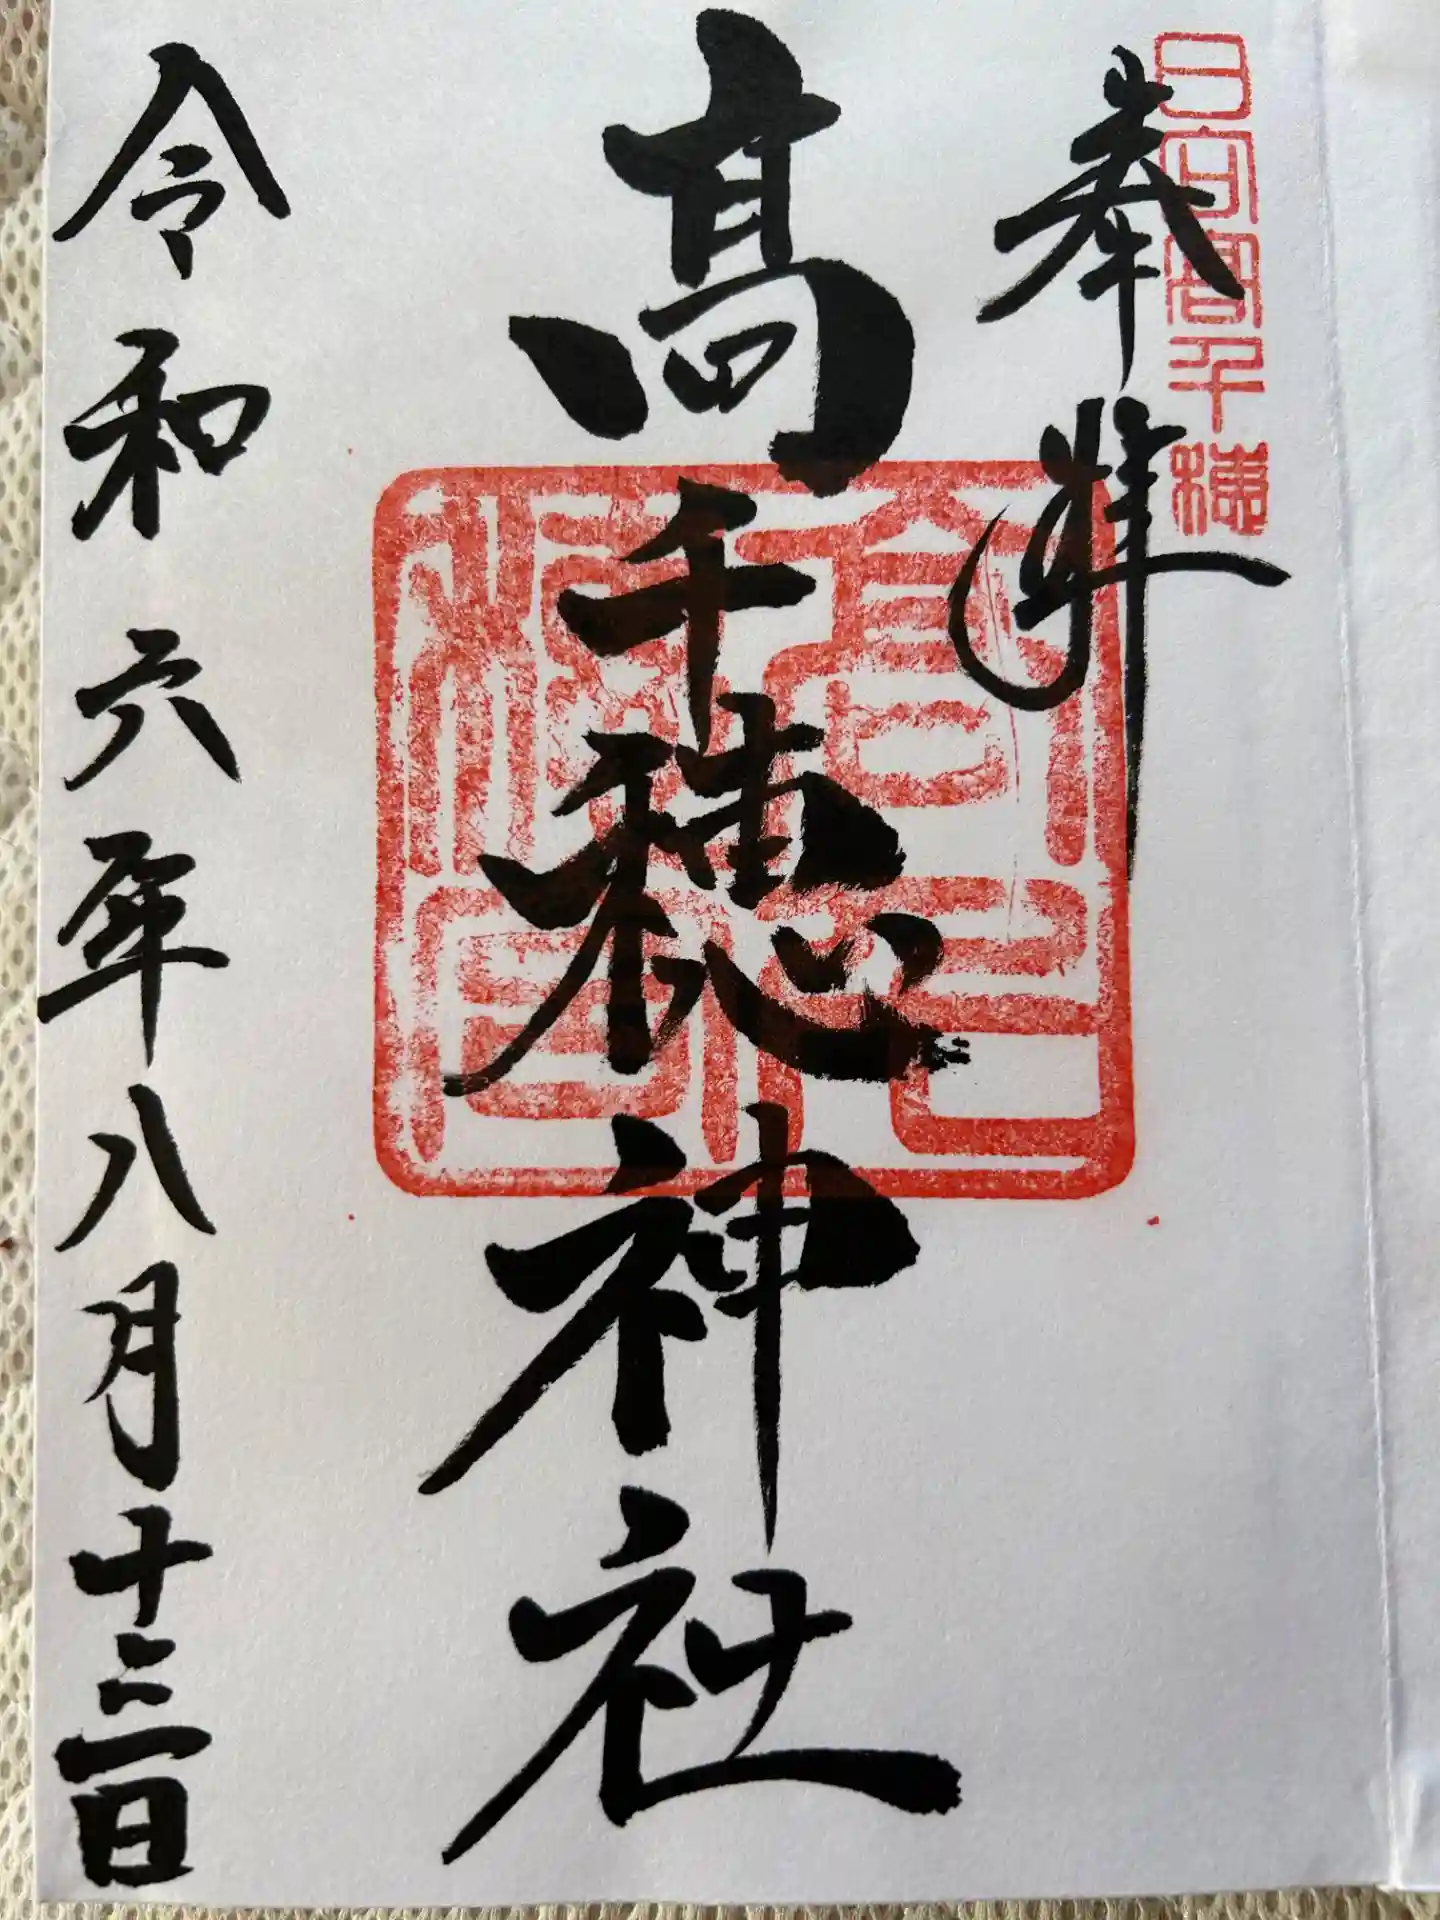 日向髙千穂
奉拝
髙千穂神社
令和六年八月十三日